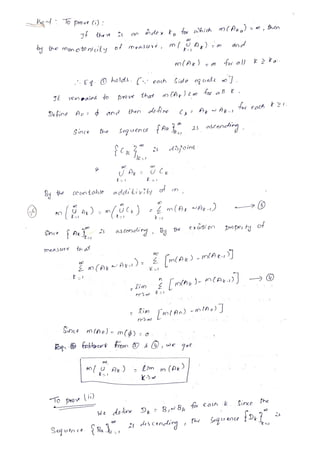 Proof: To prove (i):
If there is an index k₀ for which m(A_{k₀}) = ∞, then
by the monotonicity of measure, m(∪_{k=1}^∞ A_k) = ∞ and
m(A_k) = ∞ for all k ≥ k₀.
∴ Eq. ① holds. [∵ each side equals ∞].
It remains to prove that m(A_k) < ∞ for all k.
Define A₀ = φ and then define C_k = A_k ~ A_{k-1} for each k ≥ 1.
Since the sequence {A_k}_{k=1}^∞ is ascending,
{C_k}_{k=1}^∞ is disjoint
& ∪_{k=1}^∞ A_k = ∪_{k=1}^∞ C_k
By the countable additivity of m,
m(∪_{k=1}^∞ A_k) = m(∪_{k=1}^∞ C_k) = Σ_{k=1}^∞ m(A_k ~ A_{k-1}) → ③
Since {A_k}_{k=1}^∞ is ascending, By the excision property of
measure that
Σ_{k=1}^∞ m(A_k ~ A_{k-1}) = Σ_{k=1}^∞ [m(A_k) - m(A_{k-1})]
= lim_{n→∞} Σ_{k=1}^n [m(A_k) - m(A_{k-1})] → ④
= lim_{n→∞} [m(A_n) - m(A₀)]
Since m(A₀) = m(φ) = 0
from ③ & ④, we get
m(∪_{k=1}^∞ A_k) = lim_{k→∞} m(A_k)
To prove (ii)
We define D_k = B₁ ~ B_k for each k. Since the
sequence {B_k}_{k=1}^∞ is descending, the sequence {D_k}_{k=1}^∞ is